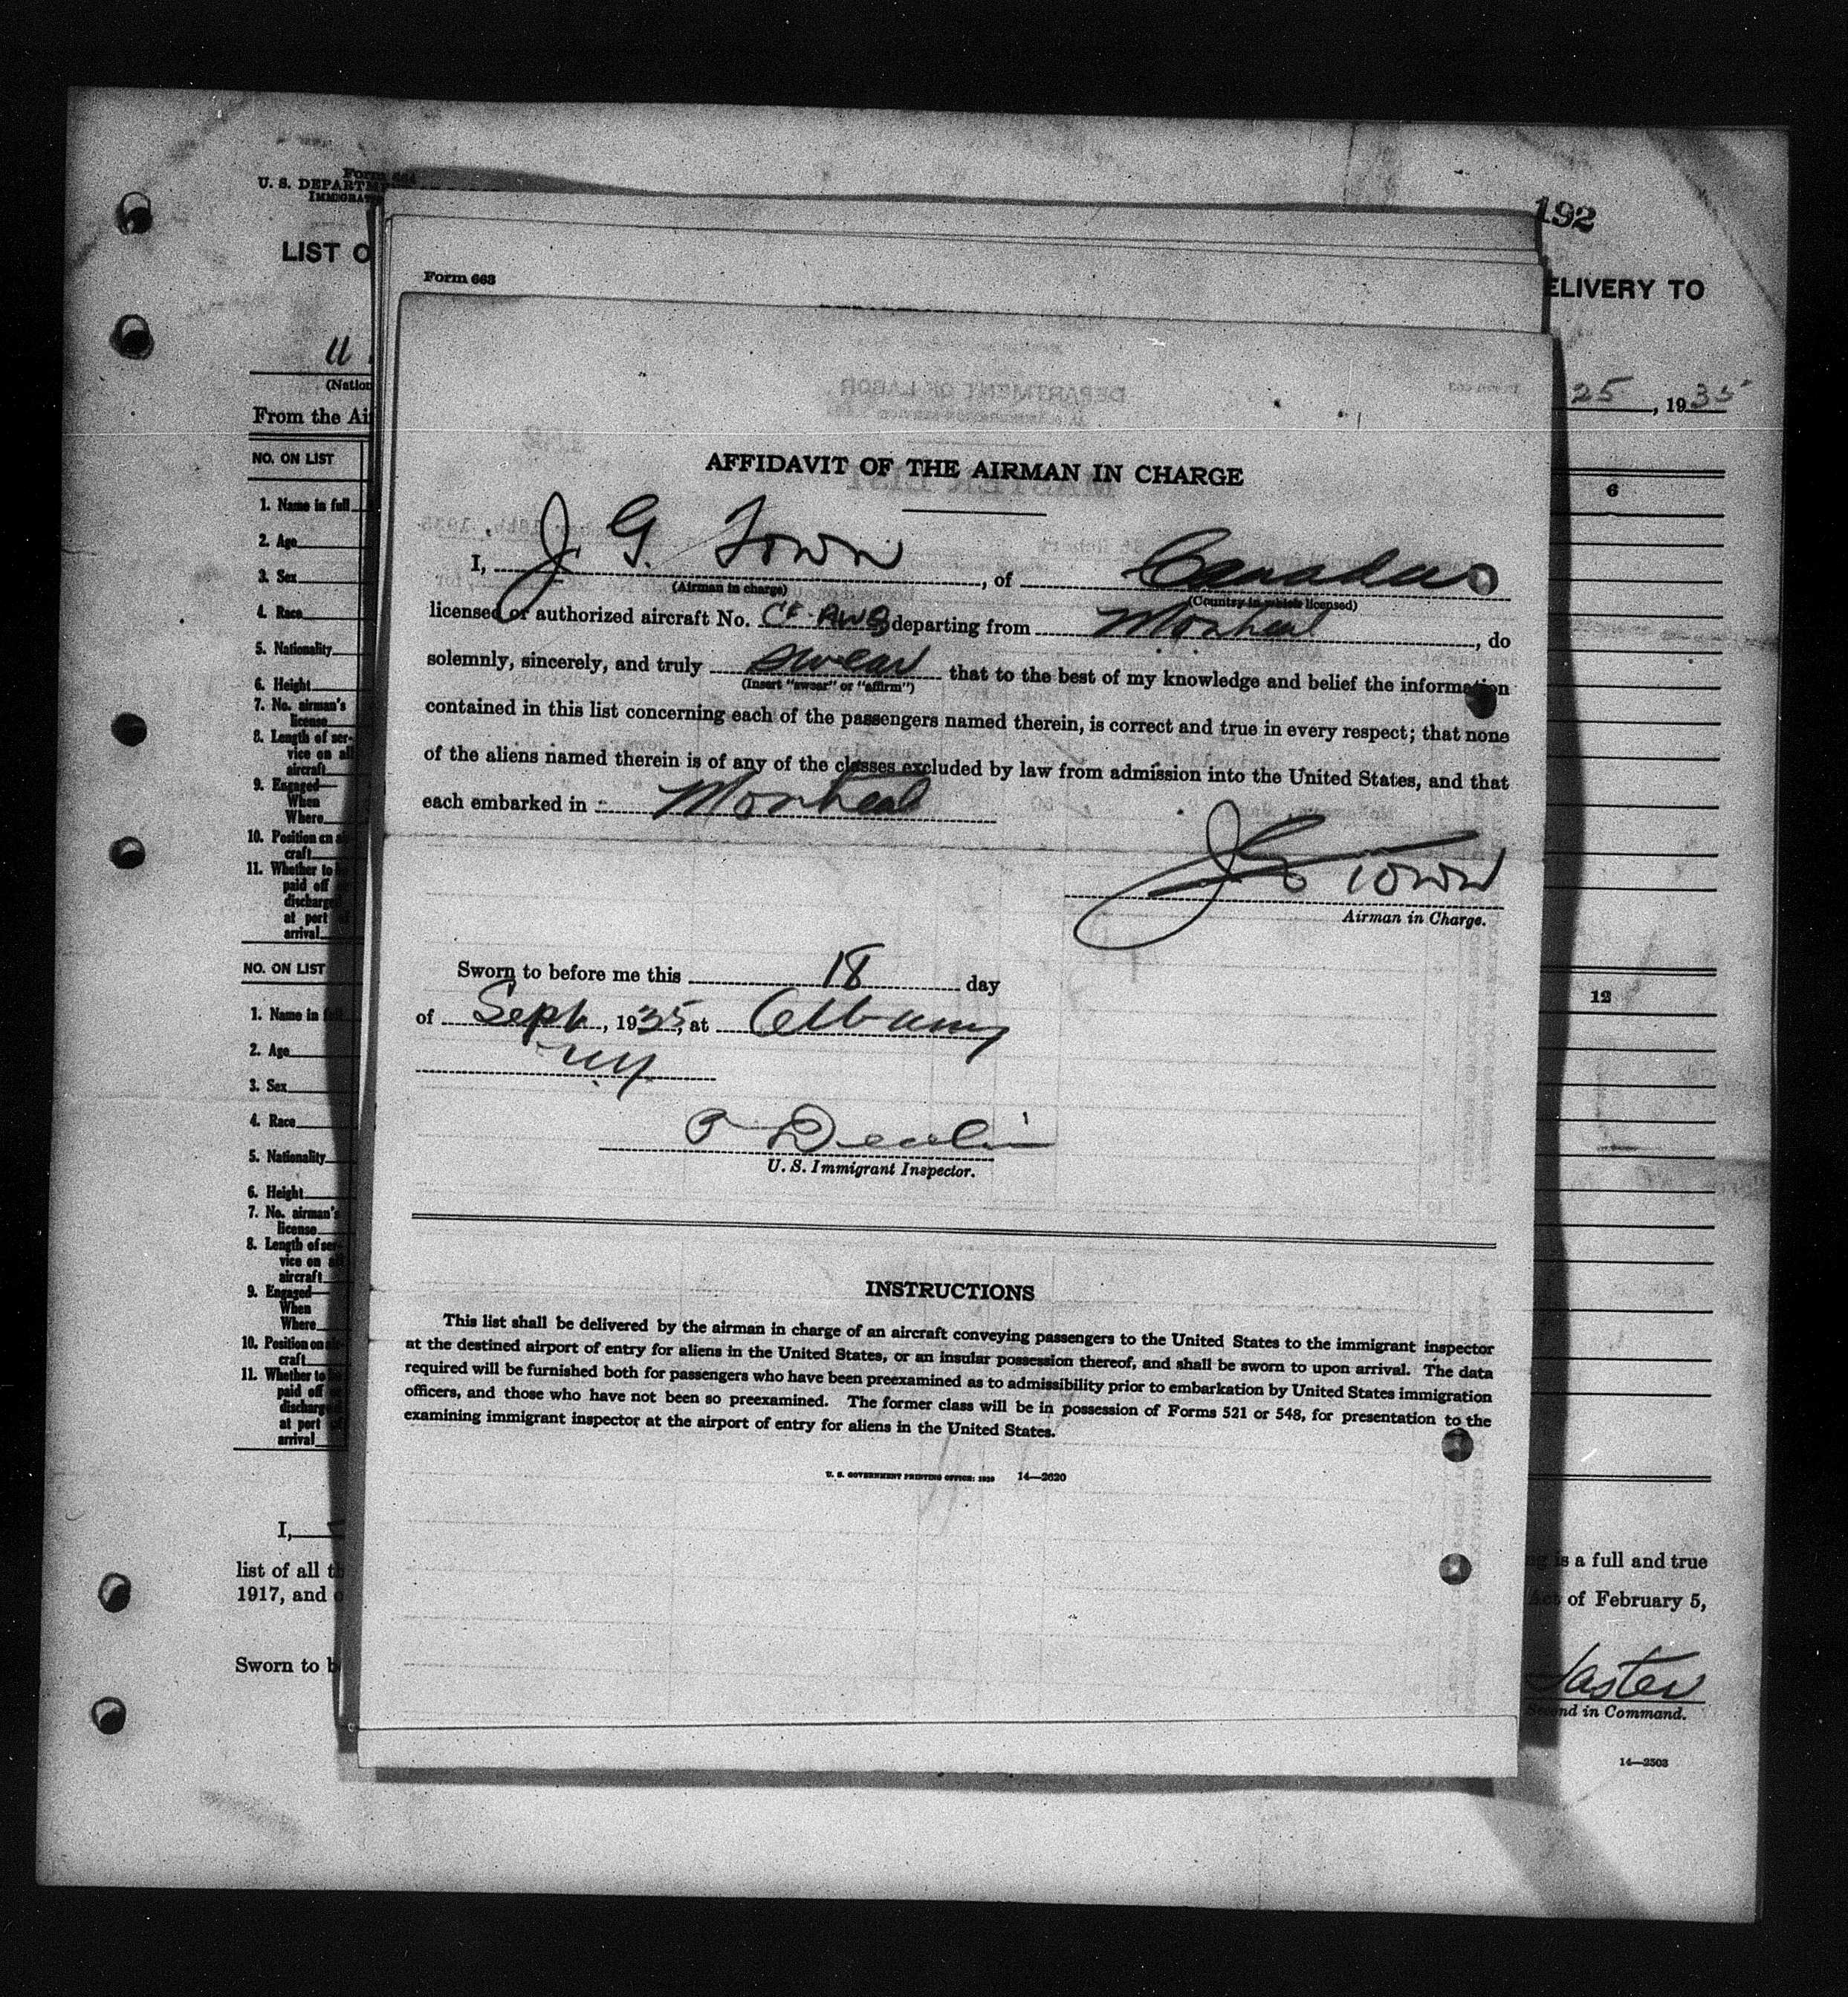 Form 664
U. S. DEPARTM
IMMIGRAT
192
LIST O
ELIVERY TO
U
(Nation
25, 1935
From the Air
NO. ON LIST
6
1. Name in full
2. Age
3. Sex
4. Race
5. Nationality
6. Height
7. No. airman's
license
8. Length of ser-
vice on all
aircraft
9. Engaged—
When
Where
10. Position on air-
craft
11. Whether to be
paid off or
discharged
at port of
arrival
NO. ON LIST
12
1. Name in full
2. Age
3. Sex
4. Race
5. Nationality
6. Height
7. No. airman's
license
8. Length of ser-
vice on all
aircraft
9. Engaged—
When
Where
10. Position on air-
craft
11. Whether to be
paid off or
discharged
at port of
arrival
I,
list of all th
ng is a full and true
1917, and o
Act of February 5,
Sworn to b
Second in Command.
14—2503
Form 663
AFFIDAVIT OF THE AIRMAN IN CHARGE
I, J. G. Town, of Canada
(Airman in charge)
(Country in which licensed)
licensed or authorized aircraft No. CF-AWB departing from Montreal, do
solemnly, sincerely, and truly swear that to the best of my knowledge and belief the information
(Insert "swear" or "affirm")
contained in this list concerning each of the passengers named therein, is correct and true in every respect; that none
of the aliens named therein is of any of the classes excluded by law from admission into the United States, and that
each embarked in Montreal
JG Town
Airman in Charge.
Sworn to before me this 18 day
of Sept, 1935, at Albany
N.Y.
P Devlin
U. S. Immigrant Inspector.
INSTRUCTIONS
This list shall be delivered by the airman in charge of an aircraft conveying passengers to the United States to the immigrant inspector
at the destined airport of entry for aliens in the United States, or an insular possession thereof, and shall be sworn to upon arrival. The data
required will be furnished both for passengers who have been preexamined as to admissibility prior to embarkation by United States immigration
officers, and those who have not been so preexamined. The former class will be in possession of Forms 521 or 548, for presentation to the
examining immigrant inspector at the airport of entry for aliens in the United States.
U. S. GOVERNMENT PRINTING OFFICE: 1929 14—2620